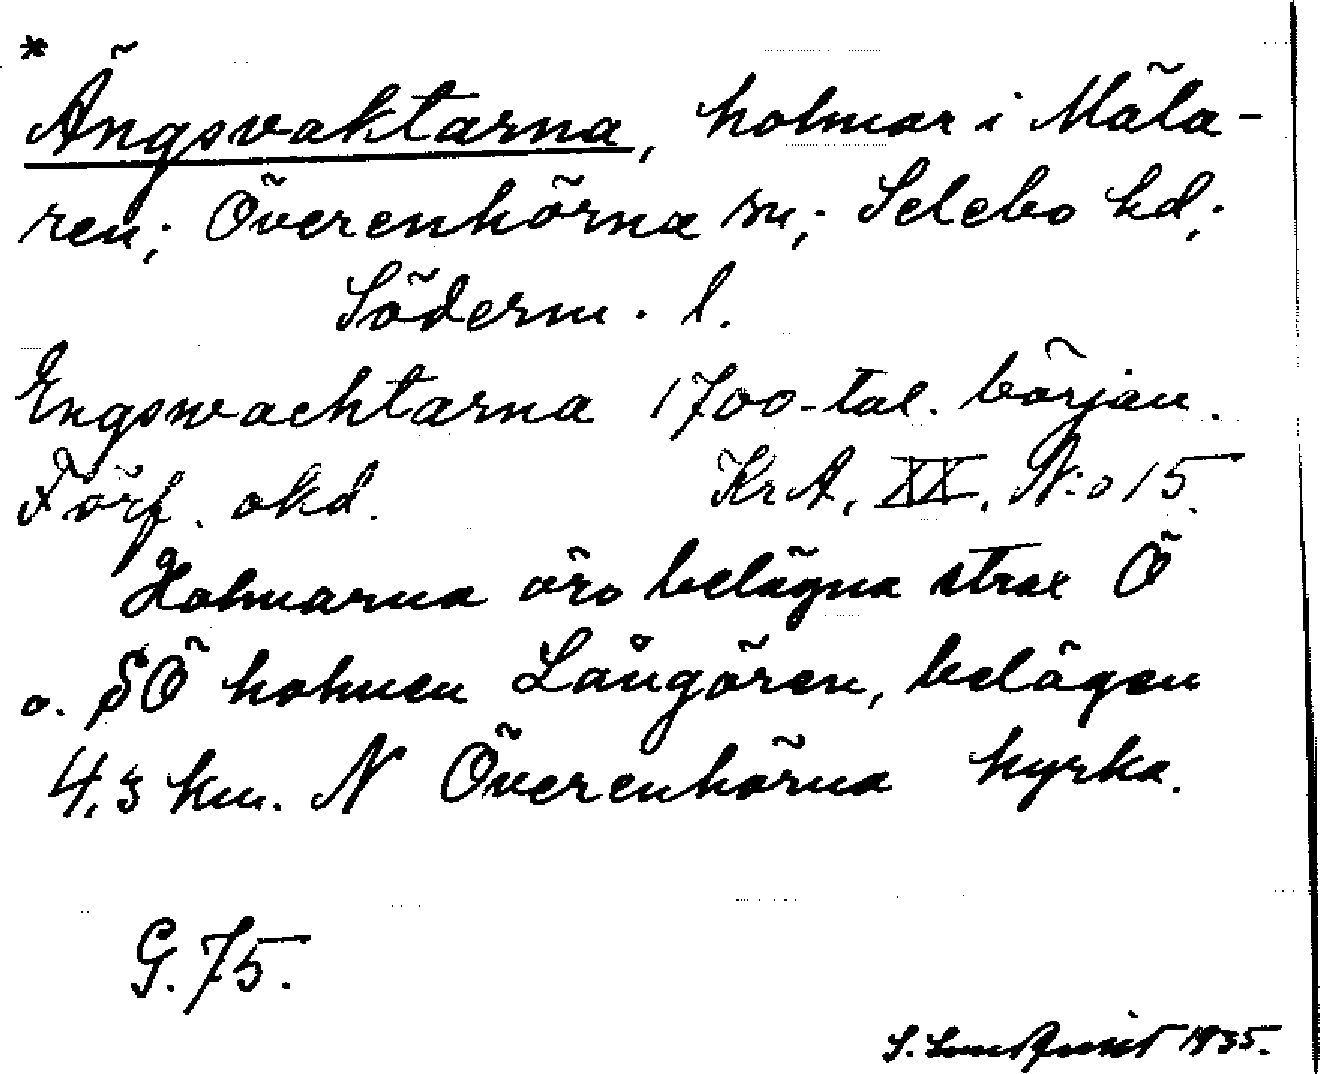 *
Ängsvaktarna, holmar i Mäla-
ren; Överenhörna sn; Selebo hd;
Söderm. l.
Engswachtarna 1700-tal. början.
Förf. okd. Kr.A. XX. N:o 15.
Holmarna äro belägna strax Ö
o. SÖ holmen Långören, belägen
4,3 km. N Överenhörna kyrka.
G. 75.
S. Lundqvist 1935.